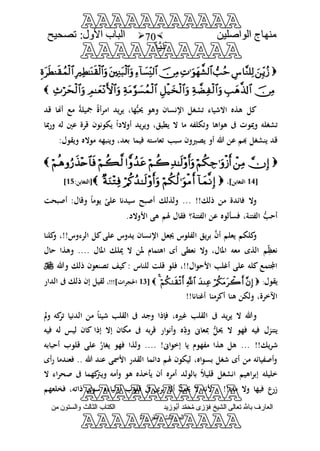 منهاج الواصلين
70
الباب الأول: تصحيح
﴿ زُيِّنَ لِلنَّاسِ حُبُّ الشَّهَوَاتِ مِنَ النِّسَاءِ وَالْبَنِينَ وَالْقَنَاطِيرِ الْمُقَنْطَرَةِ
مِنَ الذَّهَبِ وَالْفِضَّةِ وَالْخَيْلِ الْمُسَوَّمَةِ وَالْأَنْعَامِ وَالْحَرْثِ ﴾
كل هذه الاشياء تشغل الإنسان وهو يحبُّها، يريد امرأةً جميلةً مع أنها قد
تشغله ويموت فى هواها وتكلفه ما لا يطيق، ويريد أولاداً يكونون قرة عين له وربما
قد ينشغل بهم عن الله أو يصيرون سبب تعاسته فيما بعد، وينبهه مولاه ويقول:
﴿ إِنَّ مِنْ أَزْوَاجِكُمْ وَأَوْلَادِكُمْ عَدُوًّا لَّكُمْ فَاحْذَرُوهُمْ ﴾
[14 التغابن]. ﴿ إِنَّمَا أَمْوَالُكُمْ وَأَوْلَادُكُمْ فِتْنَةٌ ﴾ [التغابن:15]
إذ لا فائدة من ذلك!! ... ولذلك أصبح سيدنا علىّ يوماً وقال: أصبحت
أحبُّ الفتنة، فسألوه عن الفتنة؟ فقال لهم هى الأولاد.
وكلكم يعلم أنَّ بريق الفلوس يجعل الإنسان يدوس على كل الرءوس!!، وكلنا
نعظِّم الذى معه المال، ولا نعطى أى اهتمام لمن لا يملك المال .... وهذا حال
المجتمع كله على أغلب الأحوال!!، فلو قلت للناس : كيف تصنعون ذلك والله
يقول: ﴿ إِنَّ أَكْرَمَكُمْ عِندَ اللَّهِ أَتْقَاكُمْ ﴾ [13 الحجرات]!!!، لقيل إن ذلك فى الدار
الآخرة، ولكن هنا أكرمنا أغنانا!!
والله لا يريد فى القلب غيره، فإذا وجد فى القلب شيئاً من الدنيا تركه ولم
يتنزل فيه فهو لا يحلّ بمعانى ودِّه وأنوار قربه فى مكان إلا إذا كان ليس له فيه
شريك!! ... هل هذا مفهوم يا إخوانى! .... ولذا فهو يغارُ على قلوب أحبابه
وأصفيائه من أى شغل بسواه، ليكون لهم دائما القدر الأسمى عند الله .. فعندما رأى
خليله إبراهيم انشغل قليلاً بالولد أمره أن يأخذه هو وأمه ويتركهما فى صحراء لا
زرع فيها ولا
العارف بالله تعالى الشيخ فوزى محمد أبوزيد
الكتاب الثالث والستون من